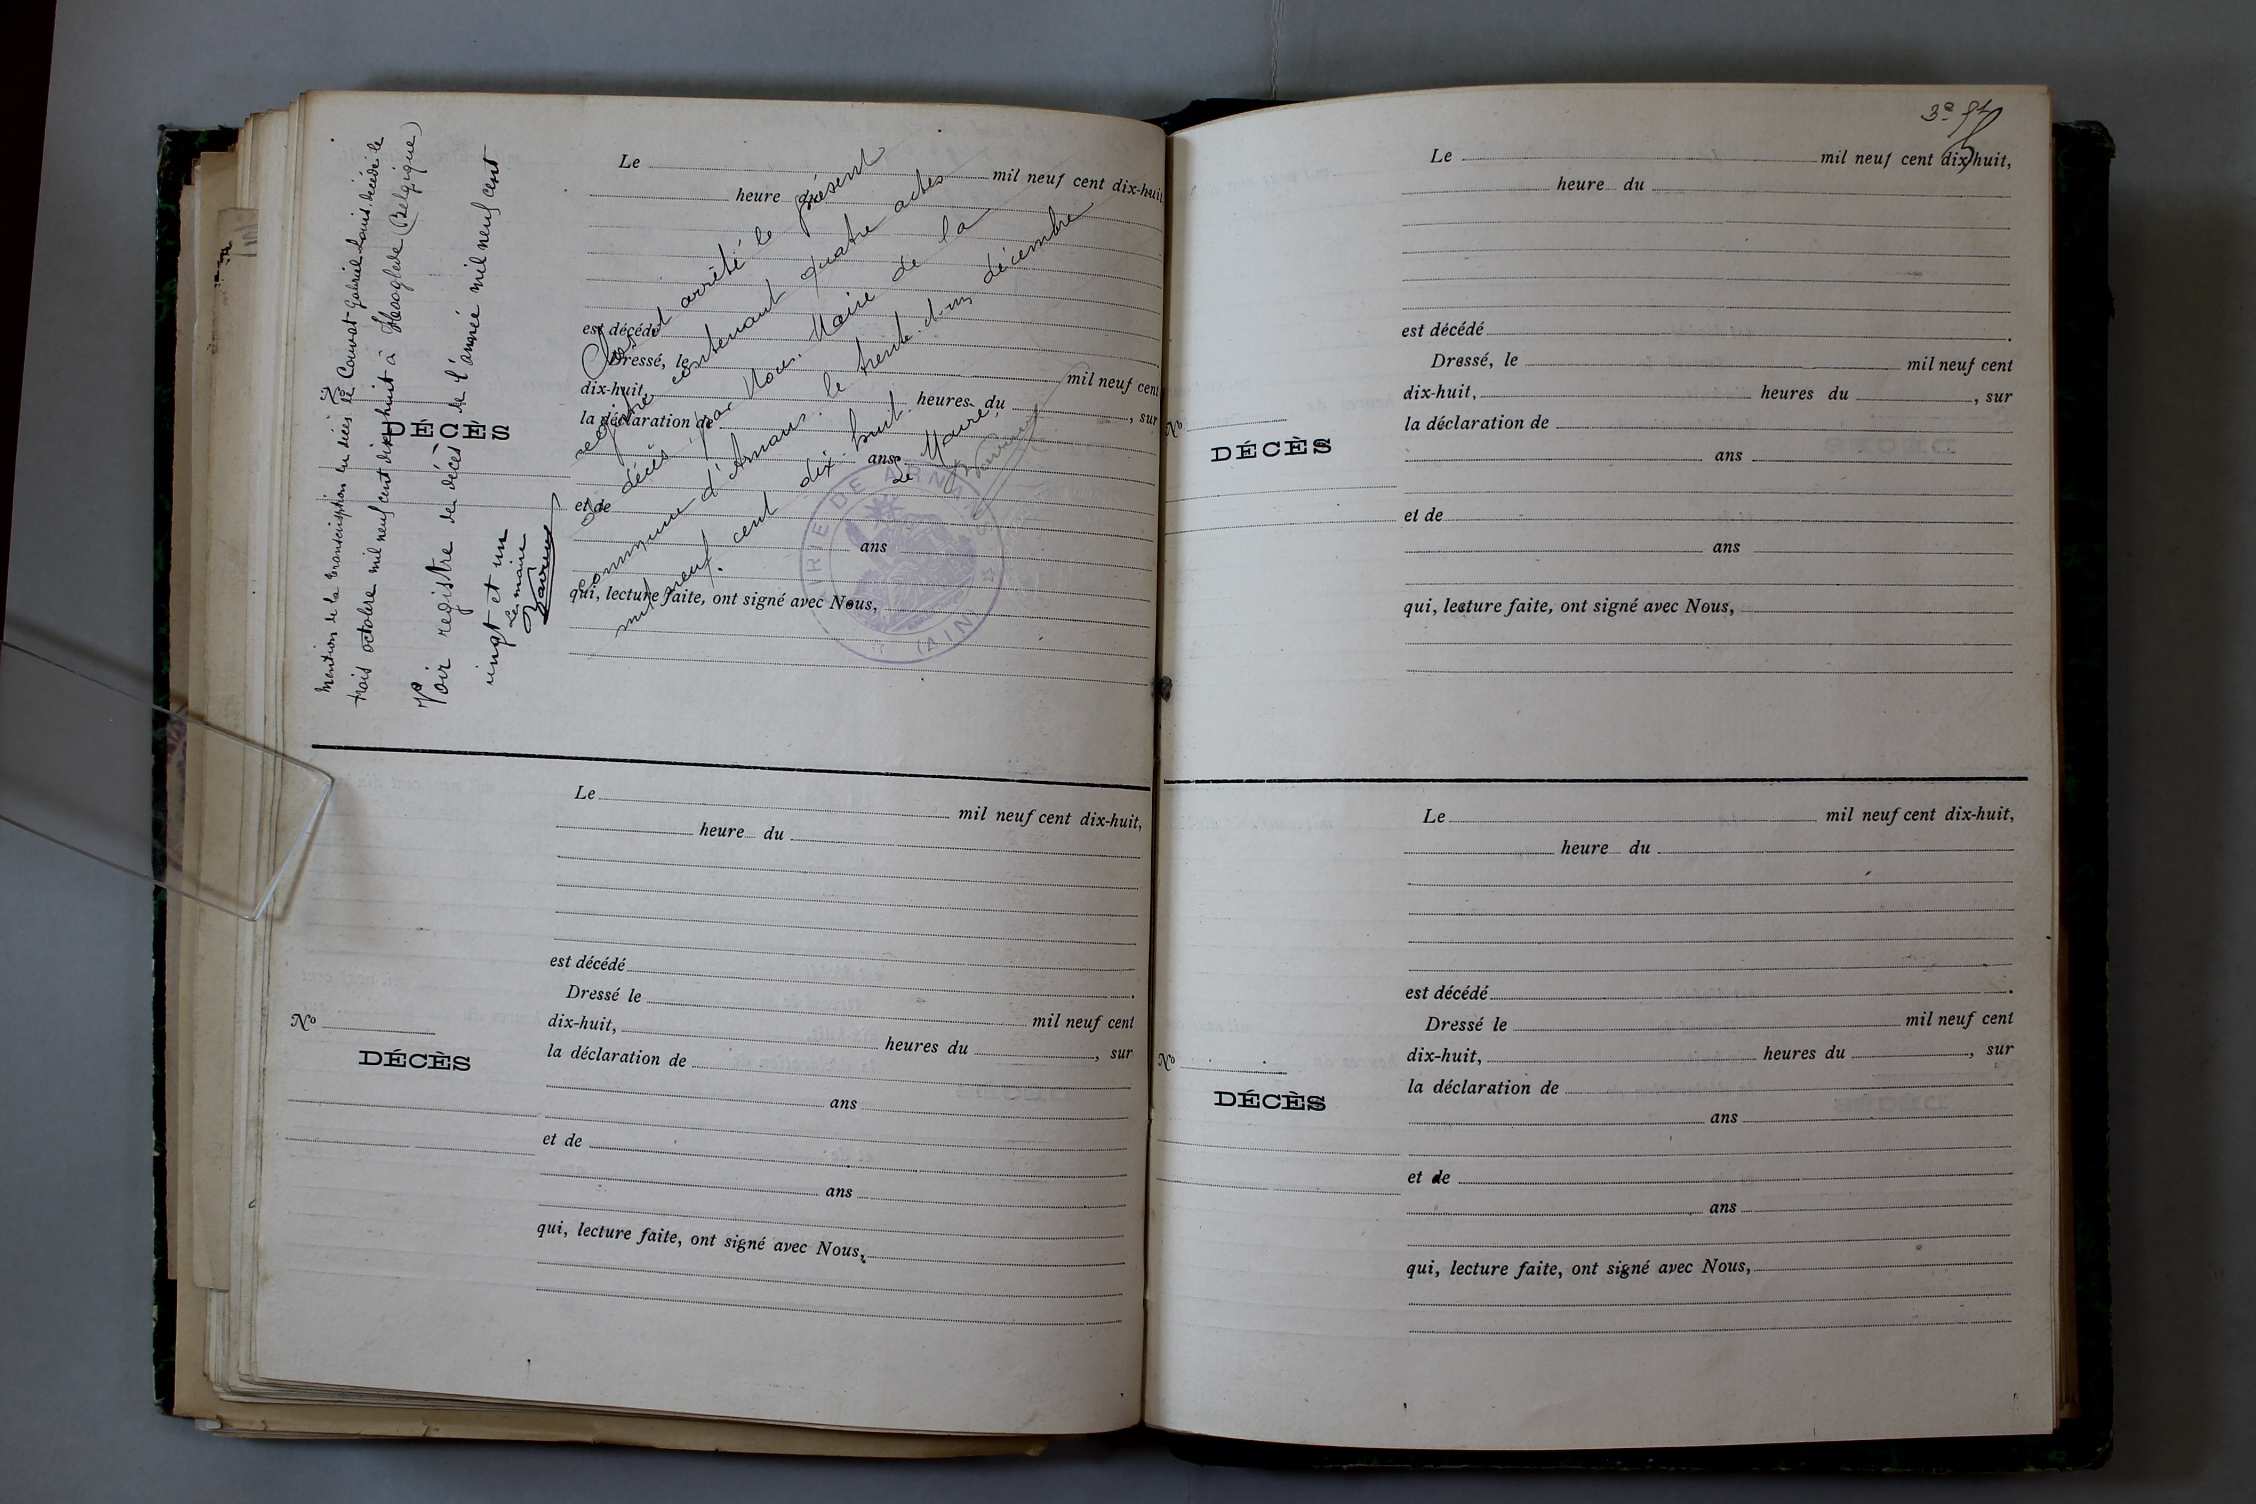 Mention de la transcription du décès de Convat Gabriel Louis décédé le
trois octobre mil neuf cent dix huit à Hooglede (Belgique)
Voir registre des décès de l'année mil neuf cent
vingt et un
Le maire
N°
DÉCÈS
Le mil neuf cent dix-huit,
heure du
est décédé
Dressé, le mil neuf cent
dix-huit, heures du , sur
la déclaration de
ans
et de
ans
qui, lecture faite, ont signé avec Nous,
Clos et arrêté le présent
registre contenant quatre actes
de décès par Nous, Maire de la
commune d'Arnans, le trente-un décembre
mil neuf cent dix-huit.
Le Maire,
MAIRIE DE ARNANS
(AIN)
Le mil neuf cent dix-huit,
heure du
est décédé
Dressé le mil neuf cent
N°
dix-huit, heures du , sur
DÉCÈS
la déclaration de
ans
et de
ans
qui, lecture faite, ont signé avec Nous,
3e ft
Le mil neuf cent dix-huit,
heure du
est décédé .
Dressé, le mil neuf cent
dix-huit, heures du , sur
N°
la déclaration de
DÉCÈS
ans
et de
ans
qui, lecture faite, ont signé avec Nous,
Le mil neuf cent dix-huit,
heure du
est décédé .
Dressé le mil neuf cent
dix-huit, heures du , sur
N°
la déclaration de
DÉCÈS
ans
et de
ans
qui, lecture faite, ont signé avec Nous,